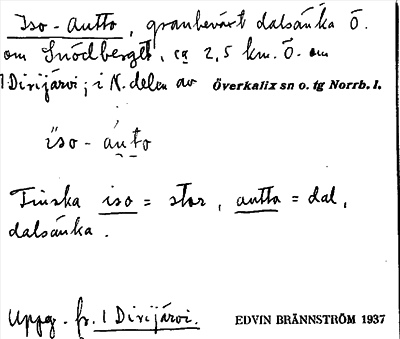 Iso-Autto, granbeväxt dalsänka Ö.
om Snödberget, ca 2,5 km. Ö. om
1 Dirijärvi; i N. delen av Överkalix sn o. tg Norrb. l.
iso - áuto
Finska iso = stor, autta = dal,
dalsänka.
Uppg. fr. 1 Dirijärvi. EDVIN BRÄNNSTRÖM 1937